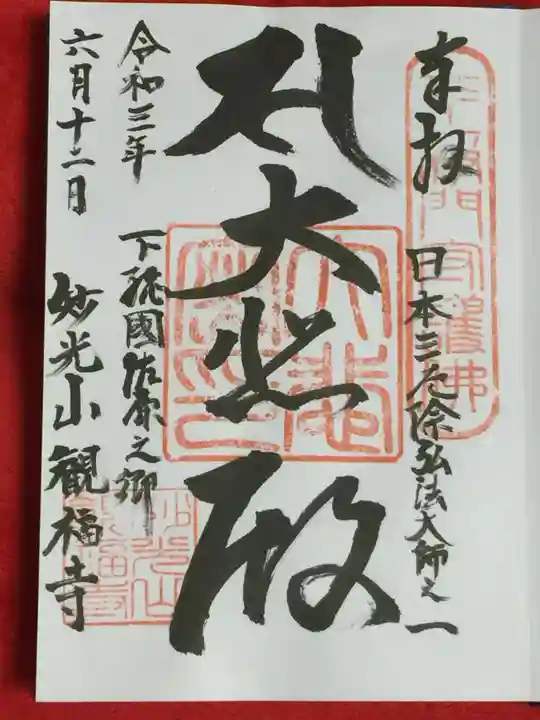 奉拝
日本三厄除弘法大師之一
大悲殿
令和三年
六月十二日
下総國佐原之郷
妙光山観福寺